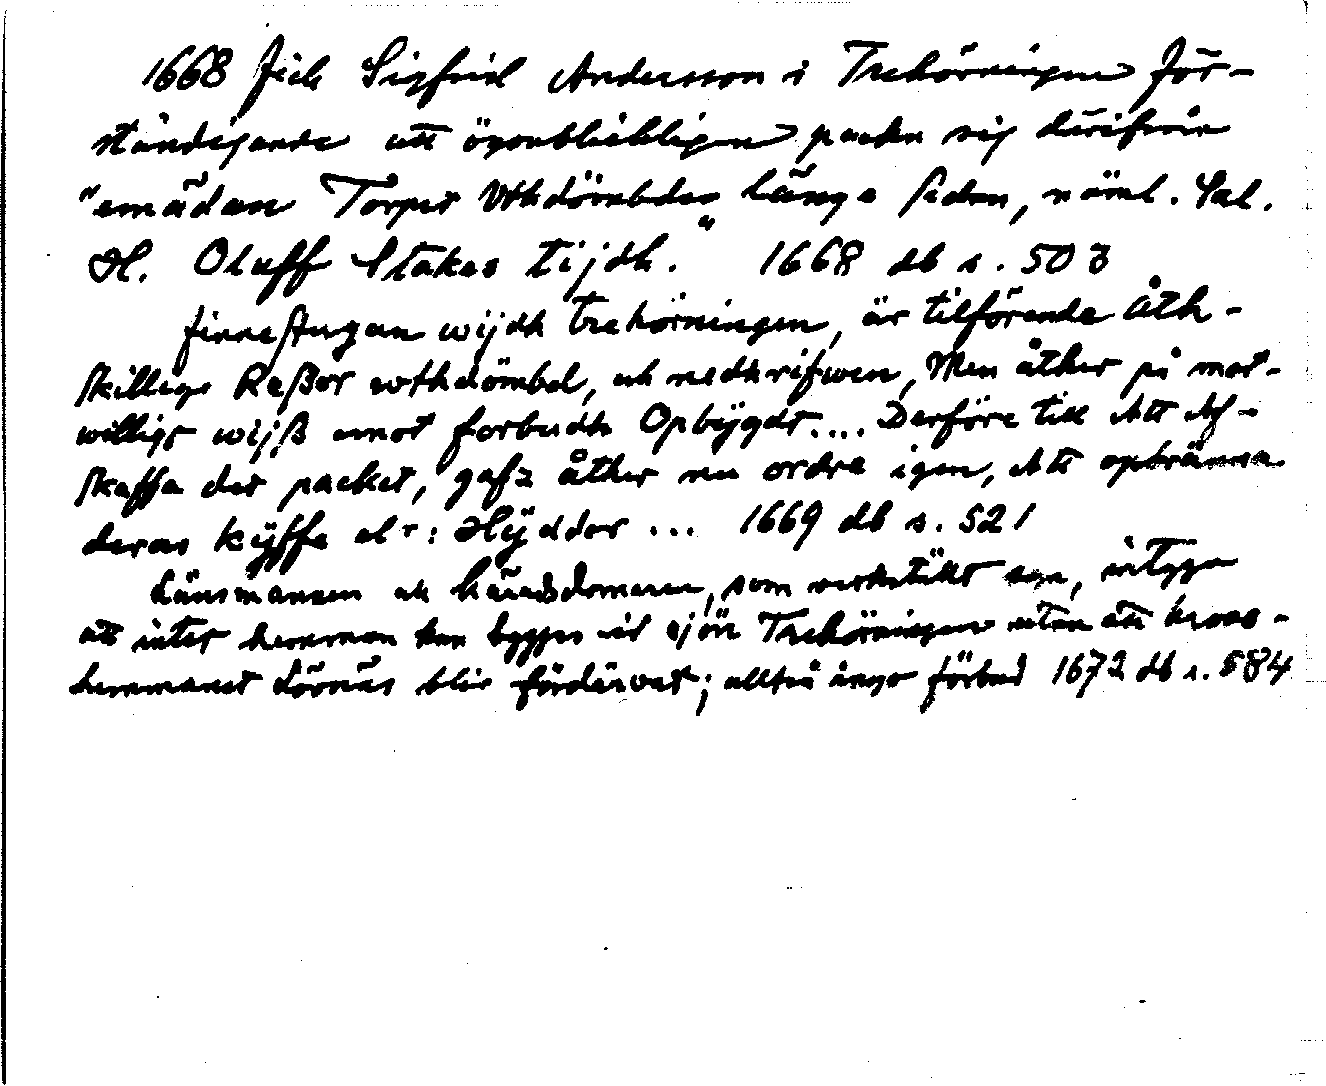 1668 fick Sigfrid Andersson i Trehörningen för-
ständigande att ögonblickligen packa sig därifrån
"emädan Torpet Vthdömbdes länge sedan, näml. Sal.
H. Oluff Stakes tijdh." 1668 db s. 503
finnestugan wijdh trehörningen, är tilförende åth-
skillige Reßor wthdömbd, och nedhrifwen, Men åther på mot-
willigt wijß emot forbudh Opbÿgdt.... Derföre till Att Af-
skaffa det packet, gafz åther nu ordre igen, Att opbränna
deras kÿffe elr: Hÿddor ... 1669 db s. 521
Länsmannen och häradsdomaren, som verkställt syn, intyga
att intet hemman kan byggas vid sjön Trehörningen utan att krono-
hemmanet Lövnäs blir fördärvat; alltså ånyo förbud 1672 db s. 584